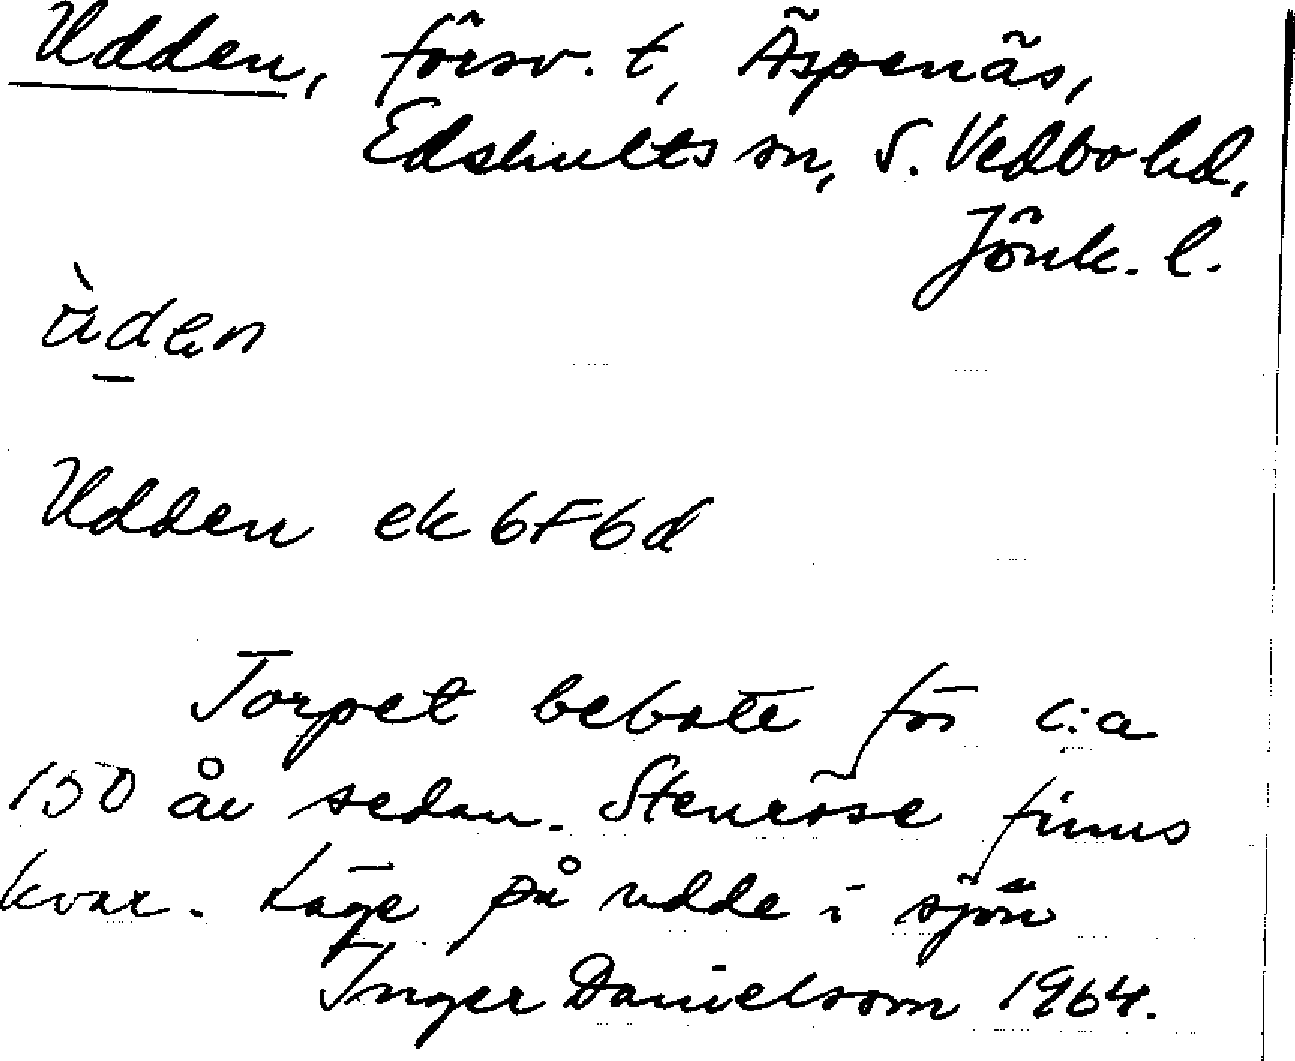 Udden, försv. t, Äspenäs,
Edshults sn, S. Vedbo hd,
Jönk. l.
ùden
Udden ek 6F6d
Torpet bebott för c:a
150 år sedan. Stenröse finns
kvar. Läge på udde i sjön
Inger Danielsson 1964.